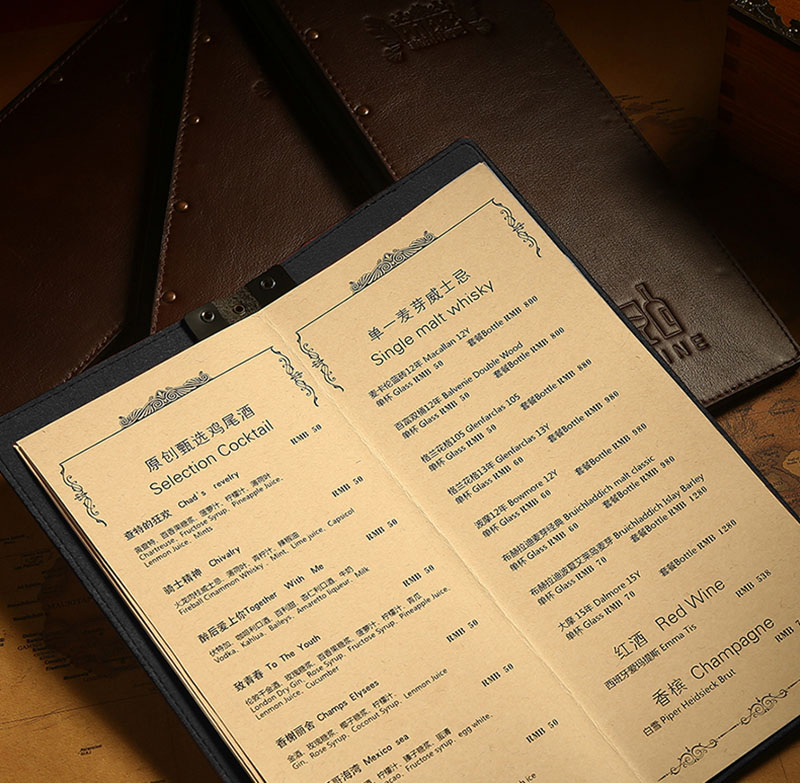 原创甄选鸡尾酒
Selection Cocktail
查特的狂欢 Chad's revelry RMB 50
Chartreuse、Fructose Syrup、Pineapple Juice、
Lenmon Juice、Mints
骑士精神 Chivalry RMB 50
火龙肉桂威士忌、薄荷叶、青柠汁、辣椒油
Fireball Cinammon Whisky、Mint、Lime juice、Capucol
醉后爱上你Together With Me RMB 50
伏特加、咖啡利口酒、百利甜、杏仁利口酒、牛奶
Vodka、Kahlua、Baileys、Amaretto liqueur、Milk
致青春 To The Youth RMB 50
伦敦干金酒、玫瑰糖浆、百香果糖浆、菠萝汁、柠檬汁、黄瓜
London Dry Gin、Rose Syrup、Fructose Syrup、Pineapple Juice
Lenmon Juice、Cucumber
香榭丽舍 Champs Elysees RMB 50
金酒、玫瑰糖浆、椰子糖浆、柠檬汁
Gin、Rose Syrup、Coconut Syrup、Lenmon Juice
哥海湾 Mexico sea RMB 50
egg white、
单一麦芽威士忌
Single malt whisky
麦卡伦蓝砖12年 Macallan 12Y
单杯 Glass RMB 50 套餐Bottle RMB 800
百富双桶12年 Balvenie Double Wood
单杯 Glass RMB 50 套餐Bottle RMB 800
格兰花格105 Glenfarclas 105
单杯 Glass RMB 50 套餐Bottle RMB 880
格兰花格13年 Glenfarclas 13Y
单杯 Glass RMB 60 套餐Bottle RMB 980
波摩12年 Bowmore 12Y
单杯 Glass RMB 60 套餐Bottle RMB 980
布赫拉迪麦芽经典 Bruichladdich malt classic
单杯 Glass RMB 60 套餐Bottle RMB 980
布赫拉迪波夏艾莱岛麦芽 Bruichladdich Islay Barley
单杯 Glass RMB 70 套餐Bottle RMB 1280
大摩 15年 Dalmore 15Y
单杯 Glass RMB 70 套餐Bottle RMB 1280
红酒 Red Wine
西班牙爱玛缇斯 Emma Tis RMB 538
香槟 Champagne
白雪 Piper Heidsieck Brut RMB